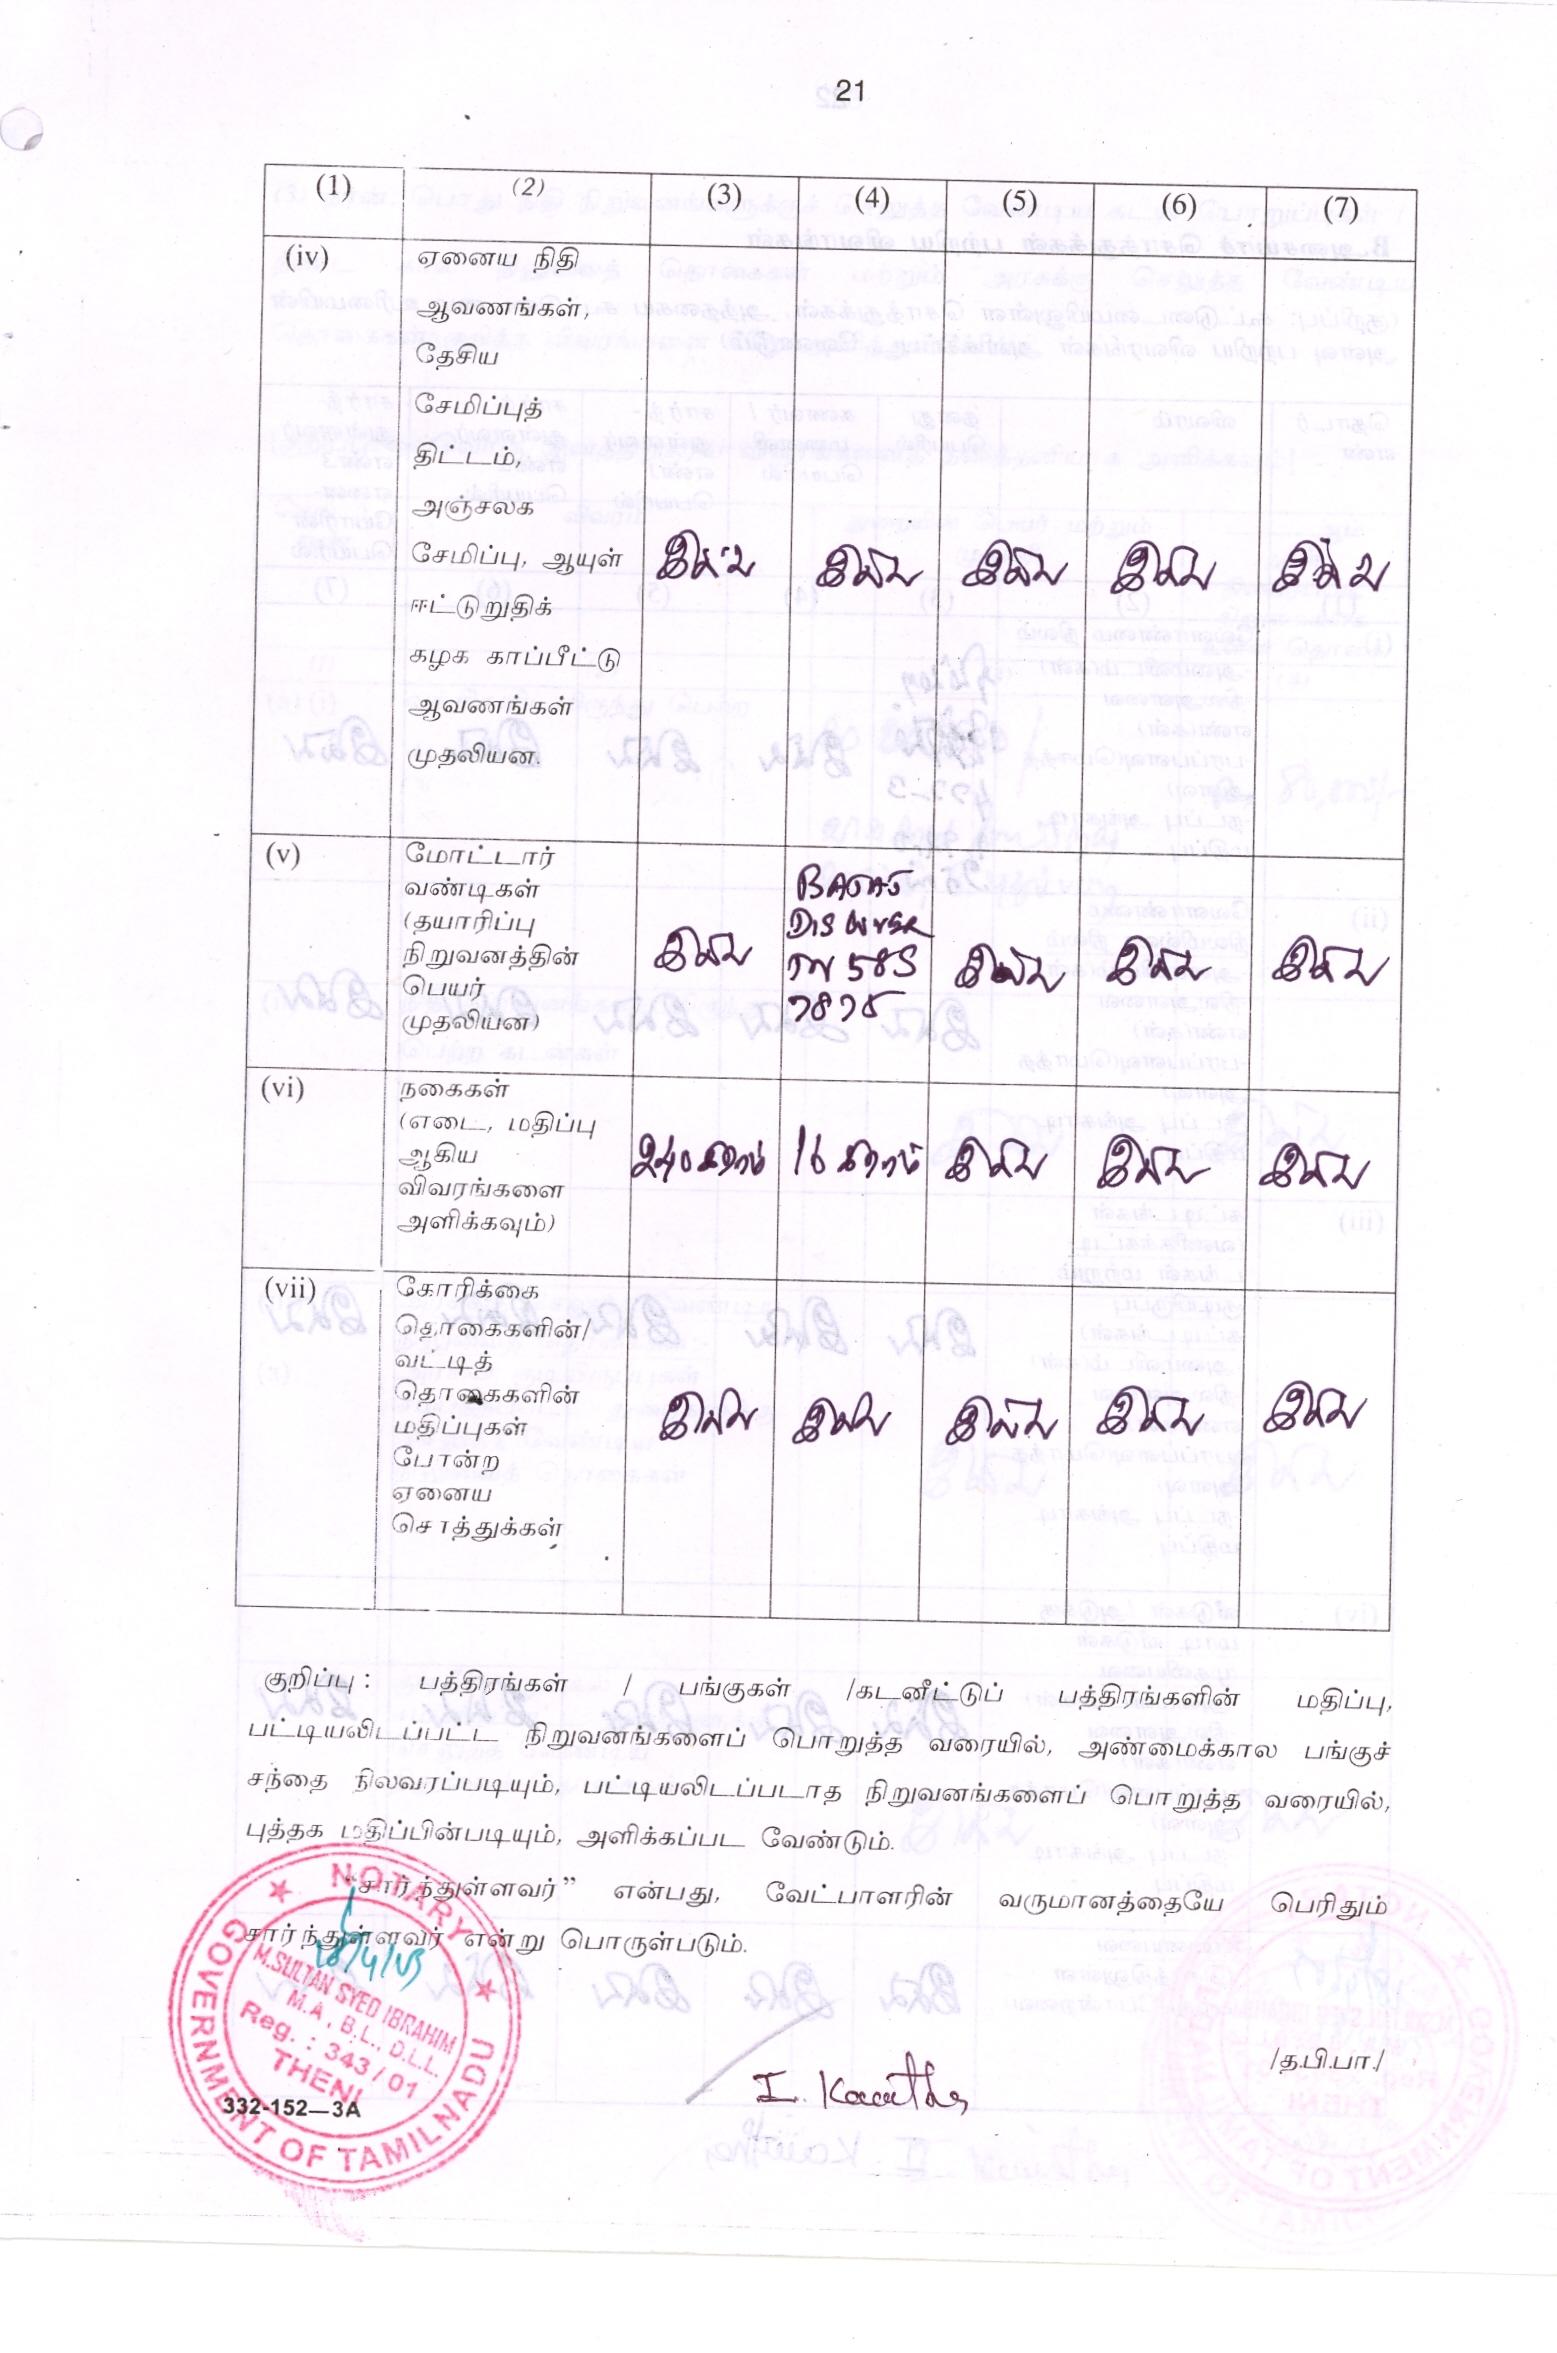 21
(1) (2) (3) (4) (5) (6) (7)
(iv) ஏனைய நிதி
ஆவணங்கள்,
தேசிய
சேமிப்புத்
திட்டம்,
அஞ்சலக
சேமிப்பு, ஆயுள் இல்லை இல்லை இல்லை இல்லை இல்லை
ஈட்டுறுதிக்
கழக காப்பீட்டு
ஆவணங்கள்
முதலியன.
(v) மோட்டார்
வண்டிகள் BAJAJ
(தயாரிப்பு DISCOVER
நிறுவனத்தின் இல்லை TN 58 S இல்லை இல்லை இல்லை
பெயர் 7878
முதலியன)
(vi) நகைகள்
(எடை, மதிப்பு
ஆகிய 240 கிராம் 16 கிராம் இல்லை இல்லை இல்லை
விவரங்களை
அளிக்கவும்)
(vii) கோரிக்கை
தொகைகளின்/
வட்டித்
தொகைகளின்
மதிப்புகள் இல்லை இல்லை இல்லை இல்லை இல்லை
போன்ற
ஏனைய
சொத்துக்கள்
குறிப்பு : பத்திரங்கள் / பங்குகள் /கடனீட்டுப் பத்திரங்களின் மதிப்பு,
பட்டியலிடப்பட்ட நிறுவனங்களைப் பொறுத்த வரையில், அண்மைக்கால பங்குச்
சந்தை நிலவரப்படியும், பட்டியலிடப்படாத நிறுவனங்களைப் பொறுத்த வரையில்,
புத்தக மதிப்பின்படியும், அளிக்கப்பட வேண்டும்.
“சார்ந்துள்ளவர்” என்பது, வேட்பாளரின் வருமானத்தையே பெரிதும்
சார்ந்துள்ளவர் என்று பொருள்படும்.
NOTARY
GOVERNMENT OF TAMILNADU
M.SULTAN SYED IBRAHIM
M.A., B.L., D.L.L.
Reg. : 343/01
THENI
/த.பி.பா./
I. Kavitha
332-152—3A